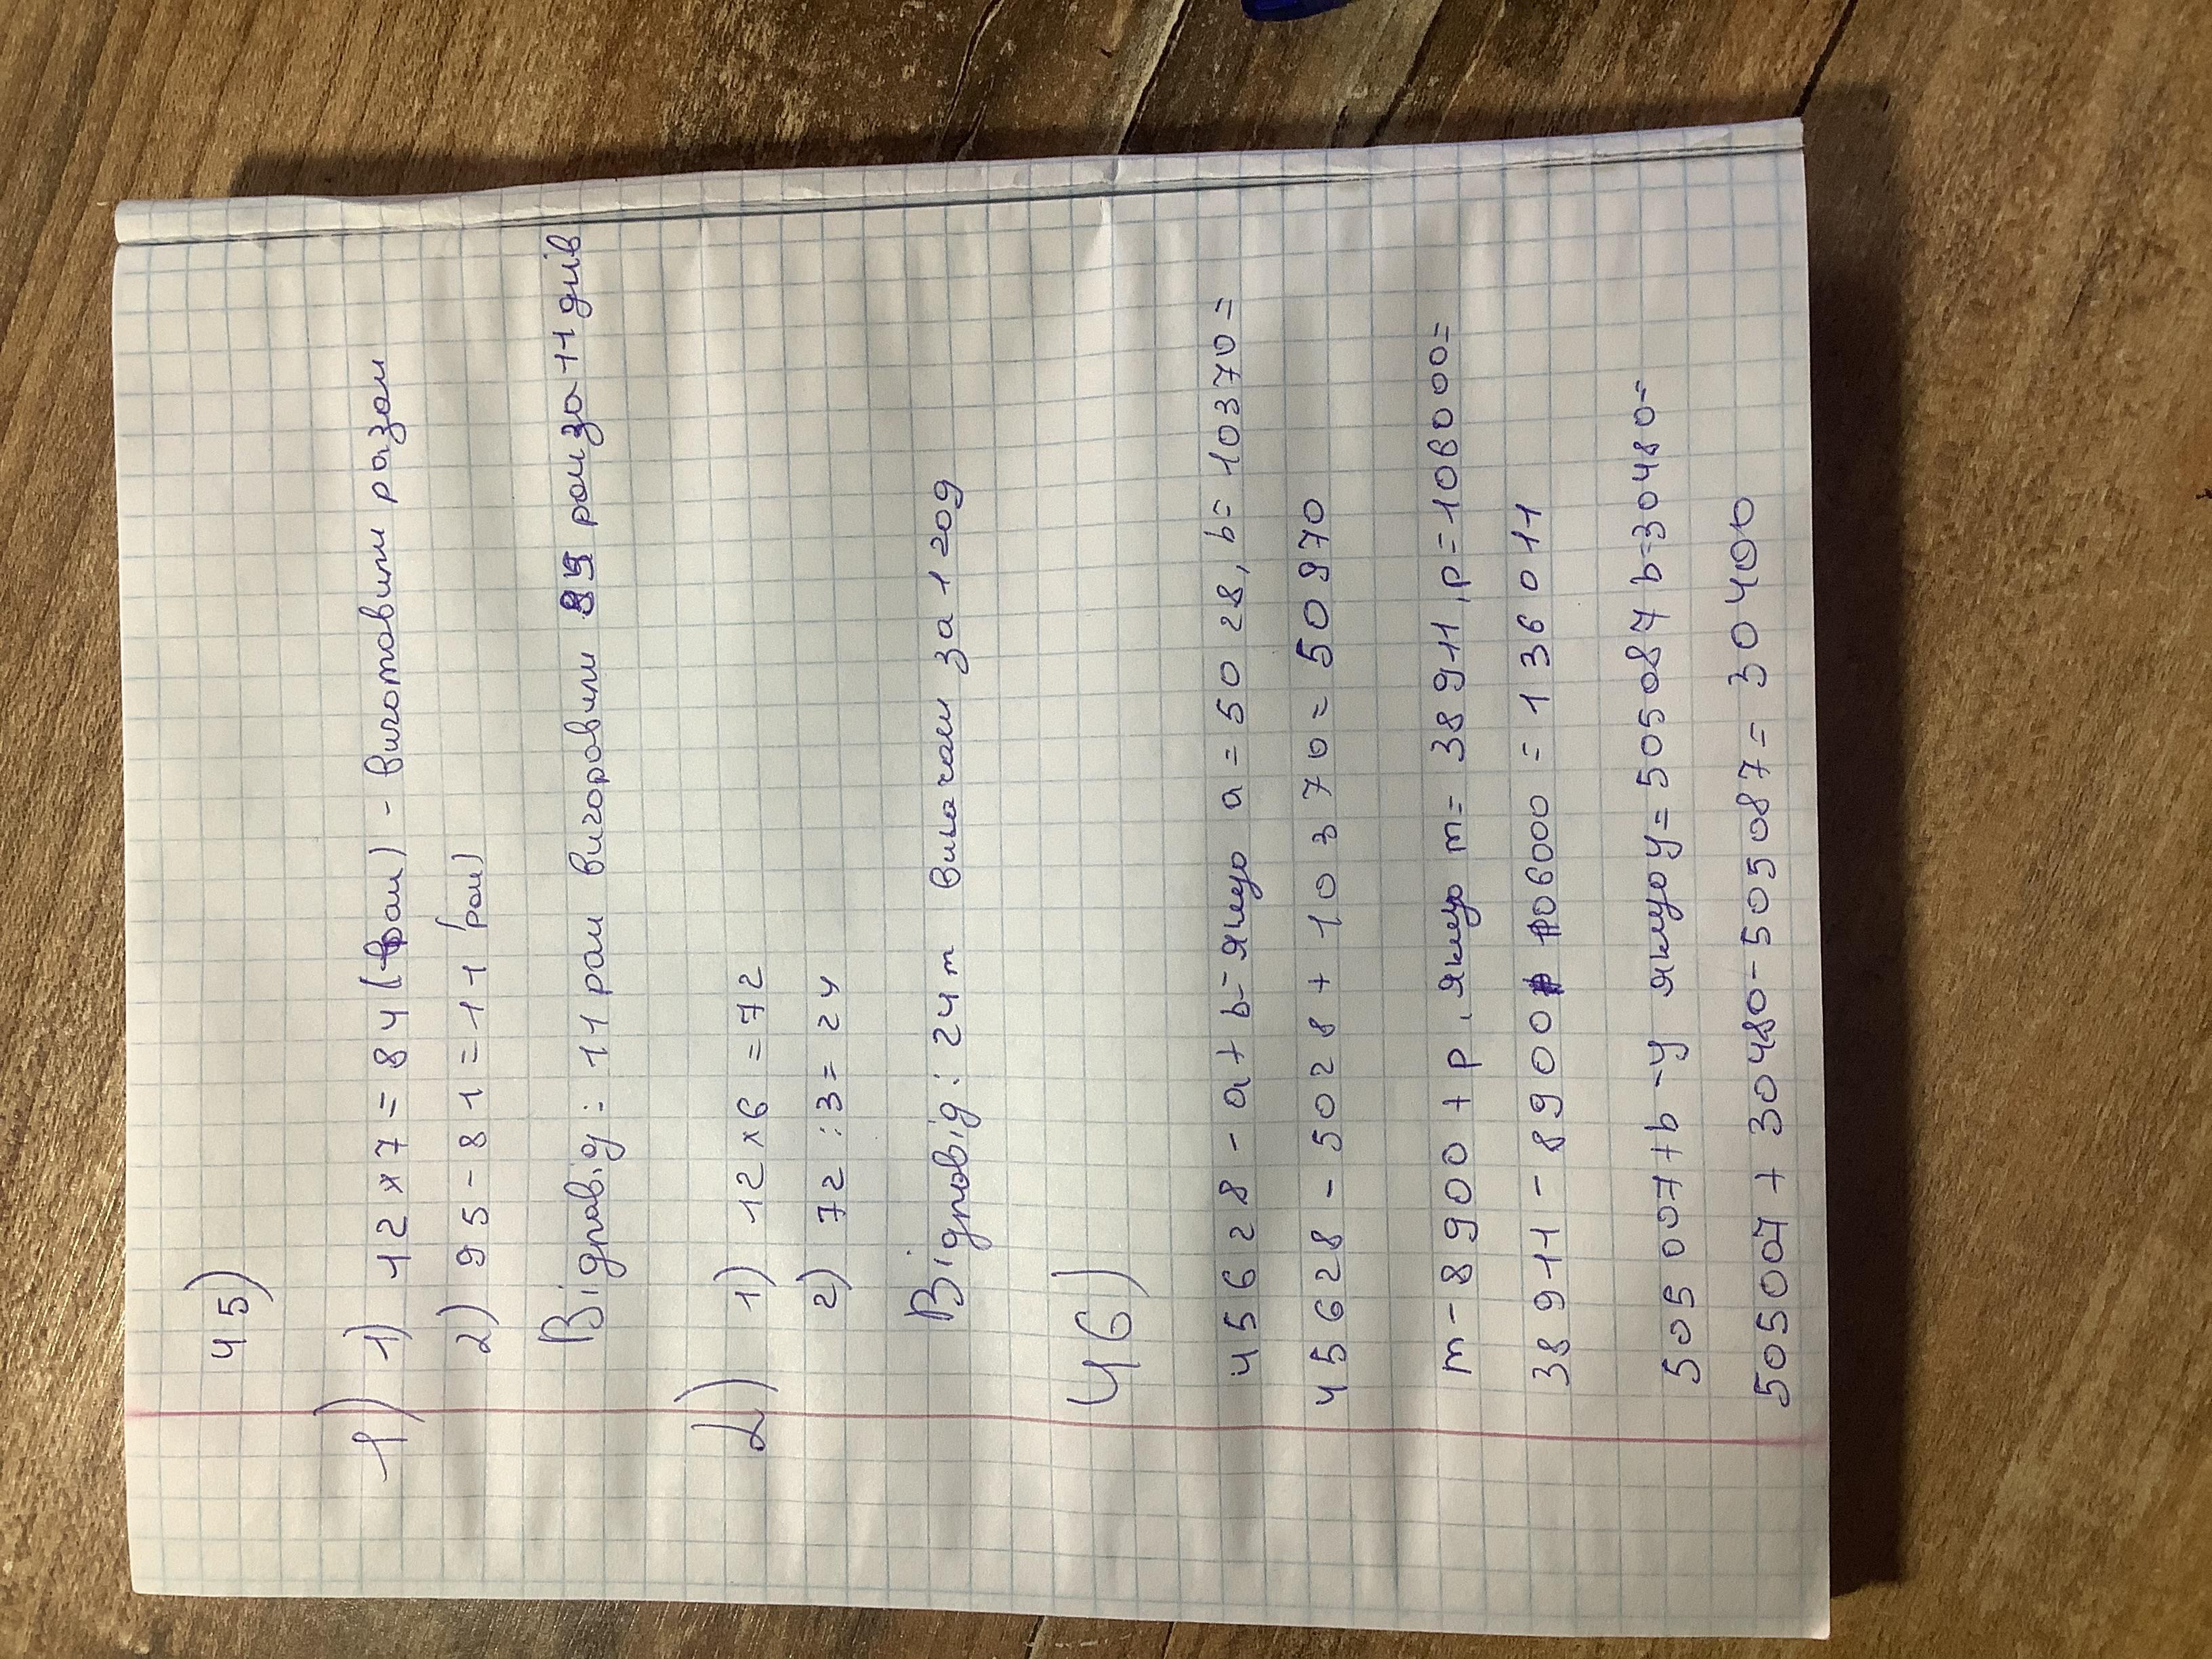 45)
1) 1) 12 × 7 = 84 (рам) - виготовили разом
2) 95 - 81 = 11 (рам)
Відповідь: 11 рам виготовили за 11 днів
2) 1) 12 × 6 = 72
2) 72 : 3 = 24
Відповід: 24 т за 1 год
46)
45628 - a + b = якщо a = 5028, b = 10370 =
45628 - 5028 + 10370 = 50970
m - 8900 + p, якщо m = 38911, p = 106000 =
38911 - 8900 + 106000 = 136011
505007 + b - y якщо y = 505087 b = 30480 =
505007 + 30480 - 505087 = 30400